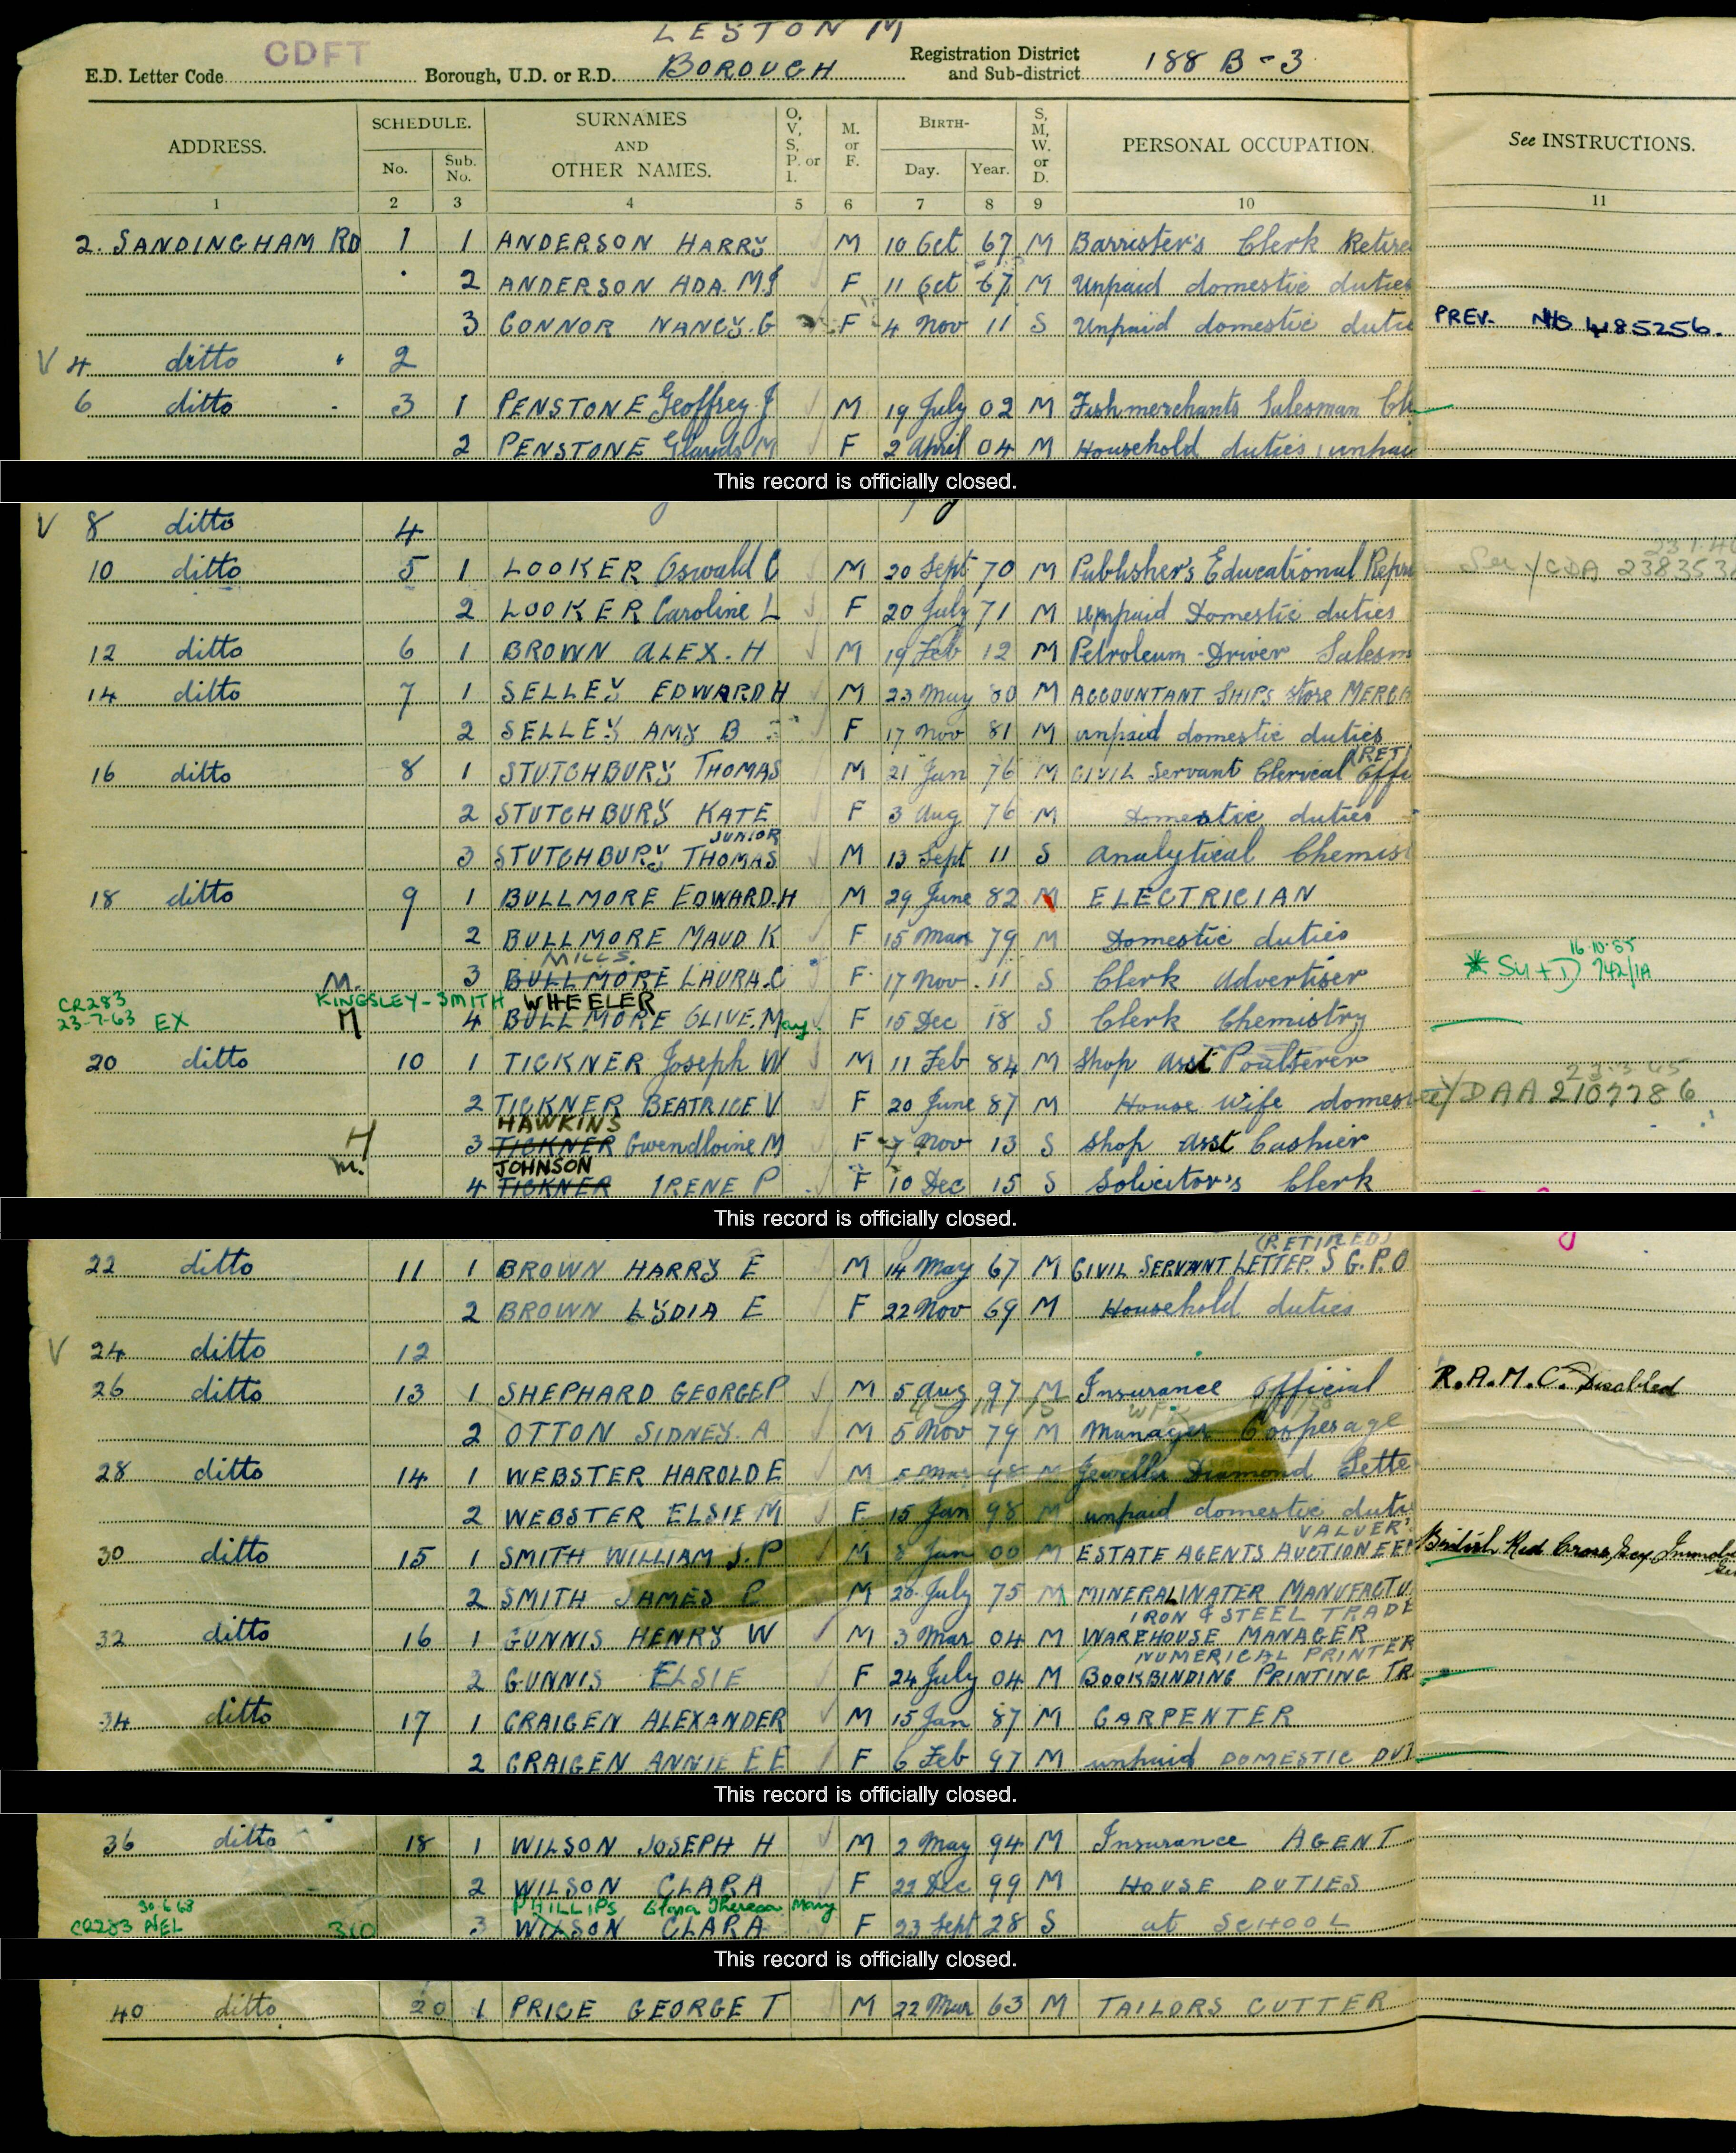 LESTON M
CDFT
E.D. Letter Code Borough, U.D. or R.D. BOROUGH Registration District and Sub-district 188 B-3
ADDRESS. SCHEDULE. No. Sub. No. SURNAMES AND OTHER NAMES. O, V, S, P. or I. M. or F. BIRTH- Day. Year. S, M, W. or D. PERSONAL OCCUPATION. See INSTRUCTIONS.
1 2 3 4 5 6 7 8 9 10 11
2. SANDINGHAM RD 1 1 ANDERSON HARRY M 10 Oct 67 M Barrister's Clerk Retire
2 ANDERSON ADA. M.J F 11 Oct 67 M Unpaid domestic duties
3 CONNOR NANCY. G F 4 Nov 11 S Unpaid domestic dutie PREV. NHS 4185256.
V 4 ditto 2
6 ditto 3 1 PENSTONE Geoffrey J M 19 July 02 M Fishmerchants Salesman Cle
2 PENSTONE Glayds M F 2 April 04 M Household duties, unpai
This record is officially closed.
V 8 ditto 4
10 ditto 5 1 LOOKER Oswald C M 20 Sept 70 M Publisher's Educational Repre
2 LOOKER Caroline L F 20 July 71 M unpaid Domestic duties
12 ditto 6 1 BROWN ALEX. H M 19 Feb 12 M Petroleum-Driver Salesm
14 ditto 7 1 SELLEY EDWARD H M 23 May 80 M ACCOUNTANT SHIPS Store MERCH
2 SELLEY AMY B F 17 Nov 81 M unpaid domestic duties
(RET)
16 ditto 8 1 STUTCHBURY THOMAS M 21 Jan 76 M CIVIL Servant Clerical Offi
2 STUTCHBURY KATE F 3 Aug 76 M Domestic duties
JUNIOR
3 STUTCHBURY THOMAS M 13 Sept 11 S Analytical Chemist
18 ditto 9 1 BULLMORE EDWARD.H M 29 June 82 M ELECTRICIAN
2 BULLMORE MAUD K F 15 Mar 79 M Domestic duties
MILLS. 16.10.55
M. 3 BULLMORE LAURA.C F 17 Nov. 11 S Clerk Advertiser
CR283 KINGSLEY-SMITH WHEELER
23-7-63 EX M 4 BULLMORE OLIVE. May. F 15 Dec 18 S Clerk Chemistry
20 ditto 10 1 TICKNER Joseph W M 11 Feb 84 M Shop Asst Poulterer
2 TICKNER BEATRICE V F 20 June 87 M House Wife domes YDAA 2107786
HAWKINS
H 3 TICKNER Gwendloine M F 7 Nov 13 S Shop Asst Cashier
JOHNSON
m. 4 TICKNER IRENE P F 10 Dec 15 S Solicitor's Clerk
This record is officially closed.
(RETIRED)
22 ditto 11 1 BROWN HARRY E M 14 May 67 M CIVIL SERVANT LETTER. S G.P.O
2 BROWN LYDIA E F 22 Nov 69 M Household duties
V 24 ditto 12
26 ditto 13 1 SHEPHARD GEORGE P M 5 Aug 97 M Insurance Official R.A.M.C. Disabled
2 OTTON SIDNEY. A M 5 Nov 79 M Manager Cooperage
28 ditto 14 1 WEBSTER HAROLD E M 5 Mar 98 M Jewells Diamond Sette
2 WEBSTER ELSIE M F 15 Jan 98 M unpaid domestic duti
VALUER
30 ditto 15 1 SMITH WILLIAM J. P M 8 Jan 00 M ESTATE AGENTS AUCTIONEER British Red Cross
2 SMITH JAMES P M 20 July 75 M MINERALWATER MANUFACTU
IRON & STEEL TRADE
32 ditto 16 1 GUNNIS HENRY W M 3 Mar 04 M WAREHOUSE MANAGER
NUMERICAL PRINTER
2 GUNNIS ELSIE F 24 July 04 M BOOKBINDING PRINTING TR
34 ditto 17 1 CRAIGEN ALEXANDER M 15 Jan 87 M CARPENTER
2 CRAIGEN ANNIE E E F 6 Feb 97 M unpaid DOMESTIC DUT
This record is officially closed.
36 ditto 18 1 WILSON JOSEPH H M 2 May 94 M Insurance AGENT
2 WILSON CLARA F 22 Dec 99 M HOUSE DUTIES
30.6.68 PHILLIPS Clara Theresa Mary
CR283 NEL 310 3 WILSON CLARA F 23 Sept 28 S at SCHOOL
This record is officially closed.
40 ditto 20 1 PRICE GEORGE T M 22 Mar 63 M TAILORS CUTTER